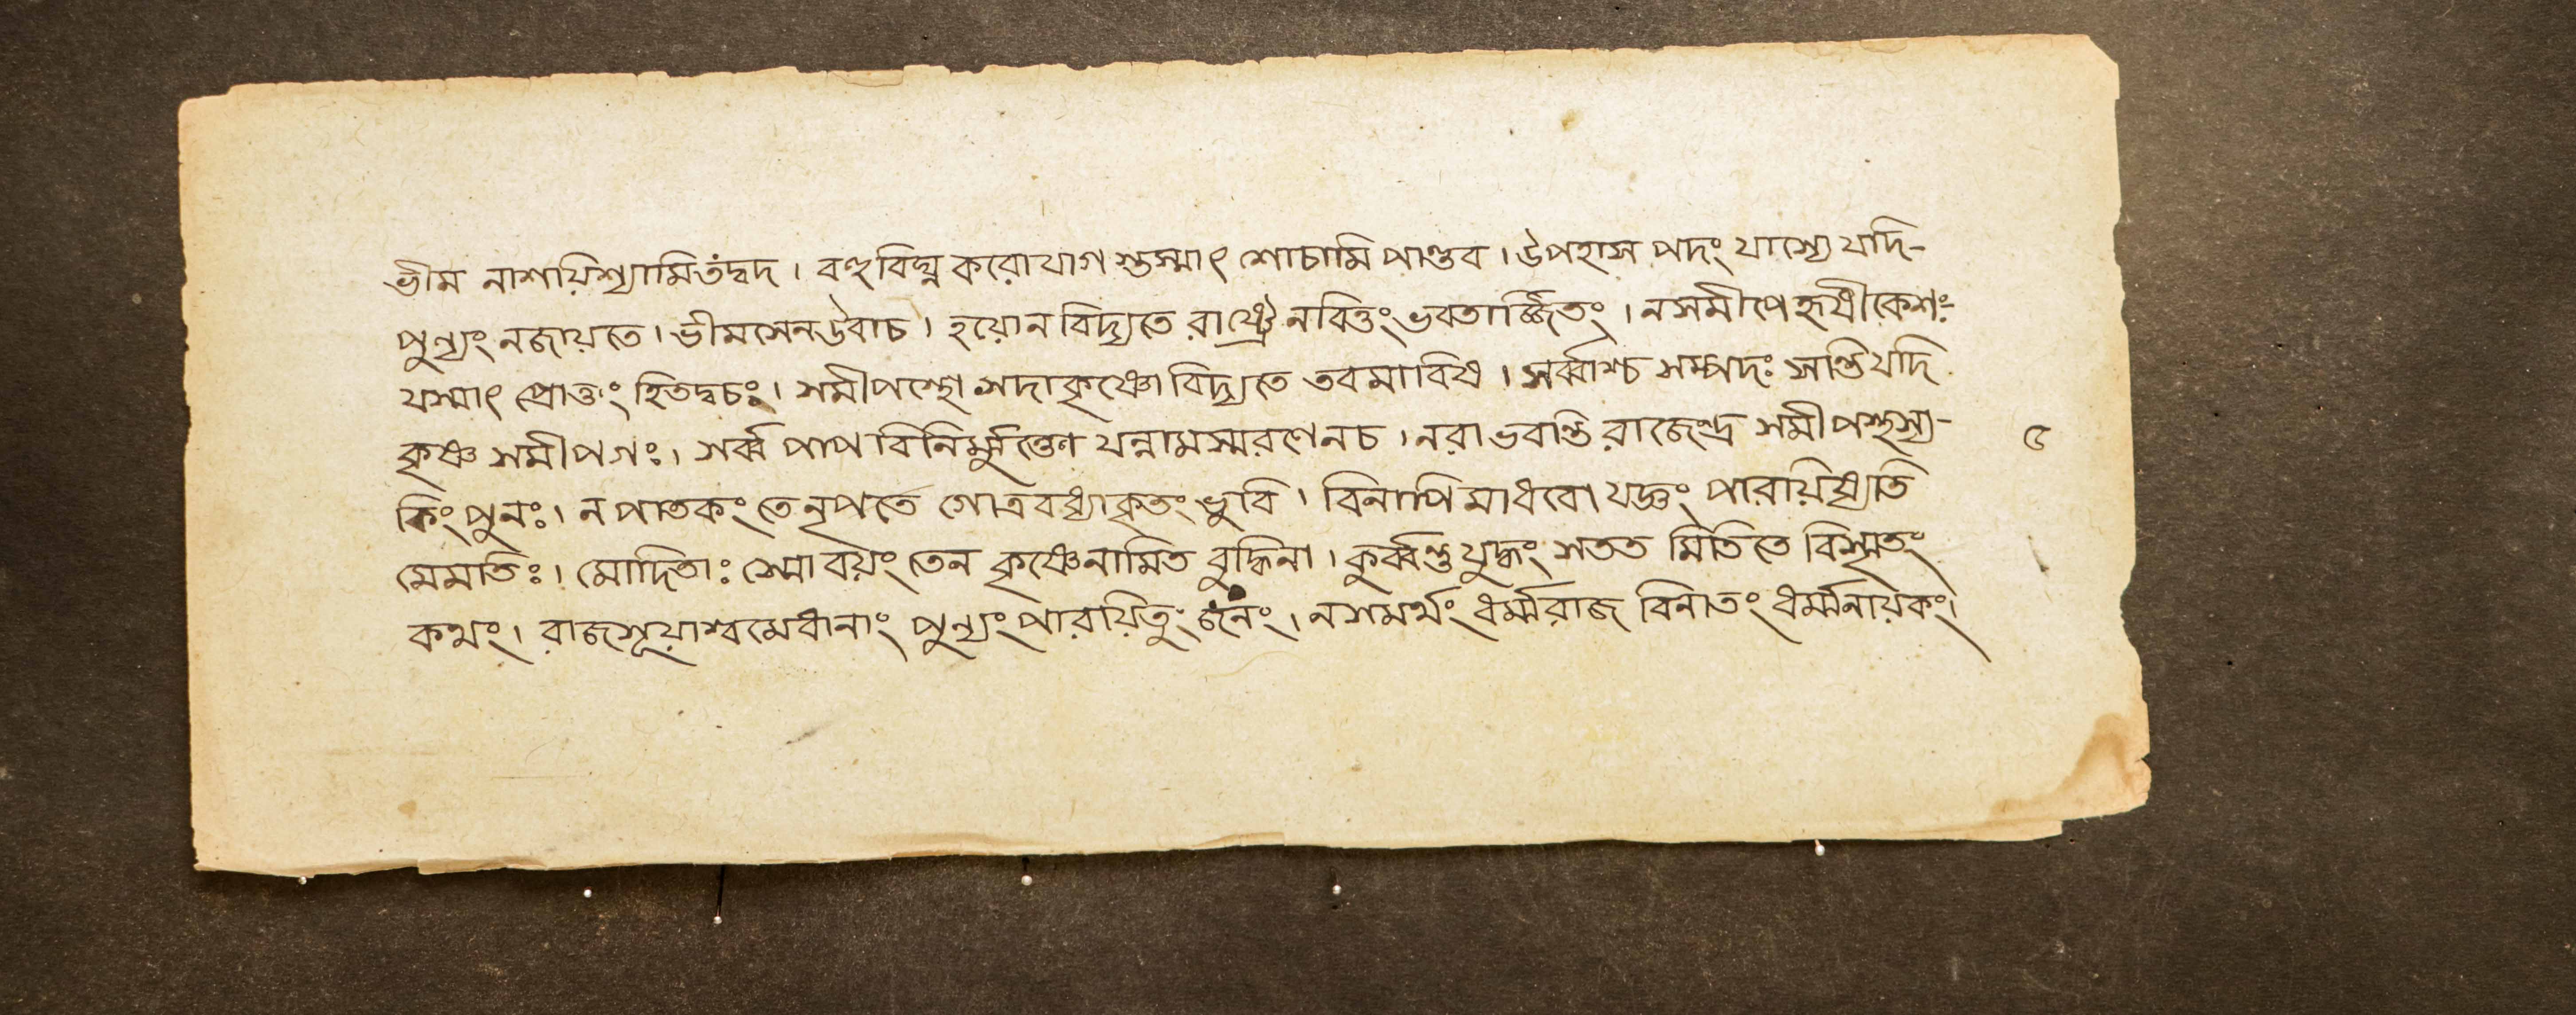 ভীম নাশায়িশ্যামিতংদ্বদ । বহুবিঘ্ন করোযাগ স্তস্মাৎ শোচামি পাণ্ডব । উপহাস পদং যাস্যে যদি-
পুন্যং নজায়তে । ভীমসেনউবাচ । হয়োন বিদ্যতে রাষ্ট্রে নবিত্তং ভবতার্জ্জিতং । নসমীপে হৃষীকেশঃ-
যস্মাৎ প্রোক্তং হিতদ্বচঃ । সমীপস্থো সদা কৃষ্ণো বিদ্যতে তবমাবিষ । সর্ব্বাশ্চ সম্পদঃ সান্তি যদি
কৃষ্ণ সমীপগঃ । সর্ব্ব পাপ বিনির্ম্মুক্তো যন্নামস্মরণেনচ । নরা ভবান্তি রাজেন্দ্র সমীপস্থস্য-
৫
কিং পুনঃ । ন পাতকং তে নৃপতে গোত্রবধ্যাকৃতং ভুবি । বিনাপি মাধবো যজ্ঞং পারায়িষ্যতি
মেমতিঃ । মোদিতাঃ স্মো বয়ং তেন কৃষ্ণেনামিত বুদ্ধিনা । কুর্ব্বন্তু যুদ্ধং সতত মিতিতে বিস্মৃতং
কথং । রাজসূয়াশ্বমেধানাং পুন্যং পারয়িতুং । নসমর্থং ধর্ম্মরাজ বিনাতং ধর্ম্মনায়কং ।